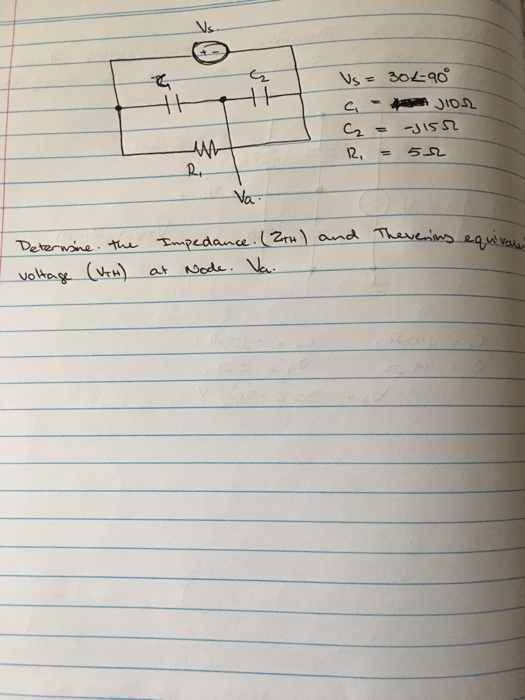 Vs
+ -
C1
C2
R1
Va.
Vs = 30∠-90°
C1 = J10Ω
C2 = -J15Ω
R1 = 5Ω
Determine. the Impedance. (ZTH) and Thevenins
voltage (VTH) at Node. Va.